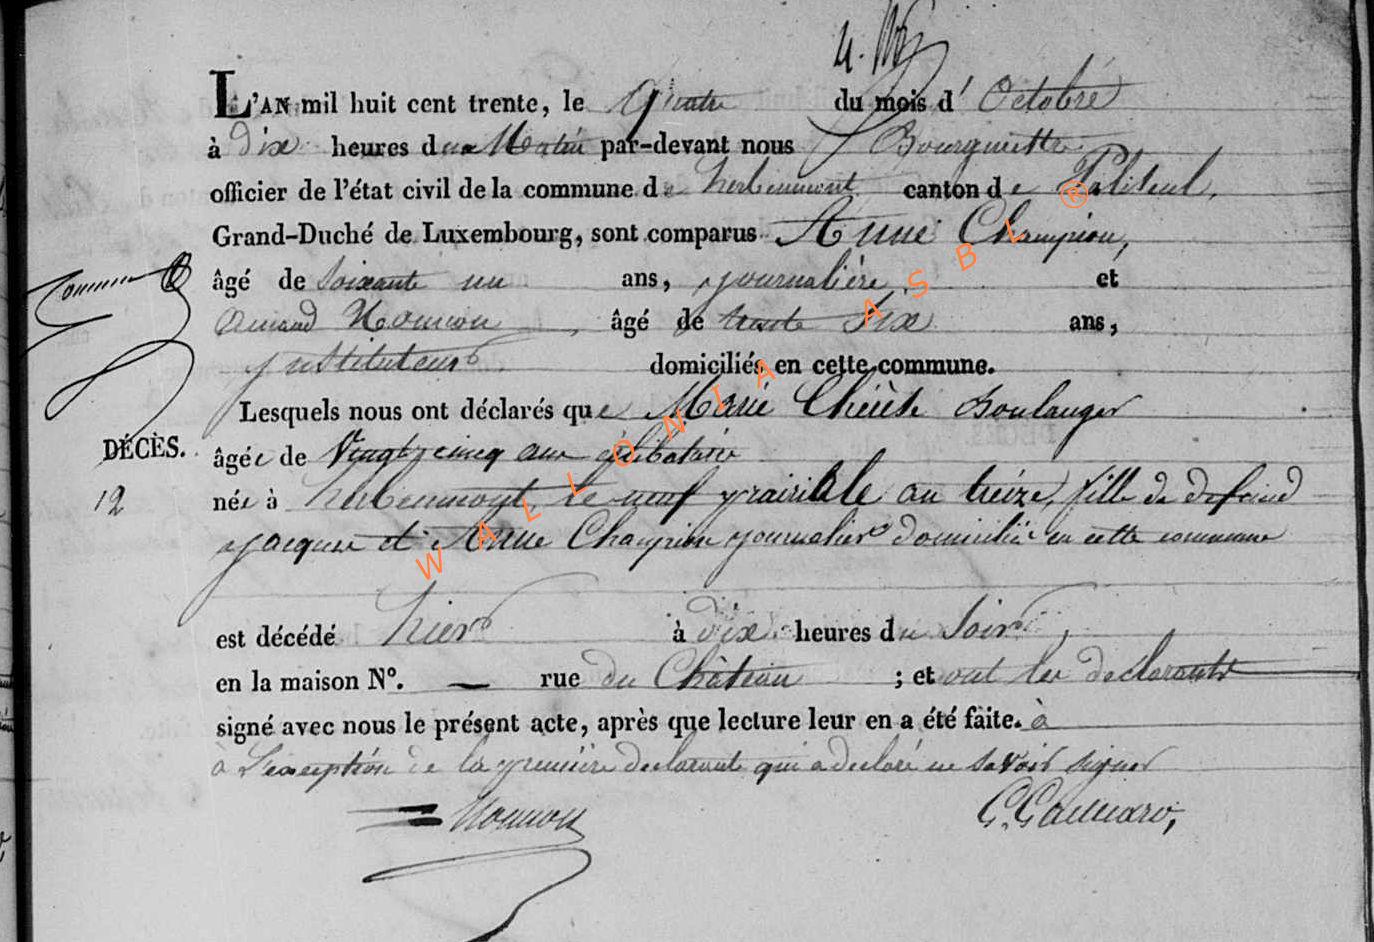 L'AN mil huit cent trente, le quatre du mois d'Octobre
à dix heures du Matin par-devant nous Bourgmestre
officier de l'état civil de la commune de herbeumont canton de Paliseul,
Grand-Duché de Luxembourg, sont comparus Anne Champion,
âgé de soixante un ans, journalière et
âgé de trente Six ans,
instituteur domiciliés en cette commune.
Lesquels nous ont déclarés que Marie Thérèse Boulanger
DÉCÈS.
âgée de Vingt cinq ans célibataire
12
née à herbeumont, le neuf prairiale an treize, fille de defeind
jacques et Anne Champion journalier domiciliée en cette commune
est décédé hier à dix heures du Soir,
en la maison N°. — rue du Château ; et ont les declarants
signé avec nous le présent acte, après que lecture leur en a été faite. à
à L'exception de la première declarante qui a declaré ne savoir signer
WALLONIA ASBL ®